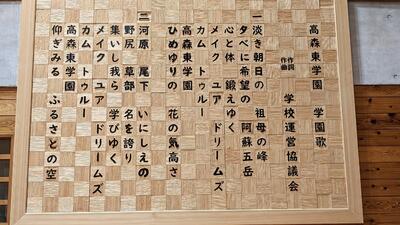 高森東学園　学園歌
作詞
作曲　学校運営協議会
一　淡き朝日の　祖母の峰
夕べに希望の　阿蘇五岳
心と体　鍛えゆく
メイク　ユア　ドリームズ
カム　トゥルー
高森東学園
ひめゆりの　花の気高さ
二　河原　尾下　いにしえの
野尻　草部　名を誇り
集いし我ら　学びゆく
メイク　ユア　ドリームズ
カム　トゥルー
高森東学園
仰ぎみる　ふるさとの空